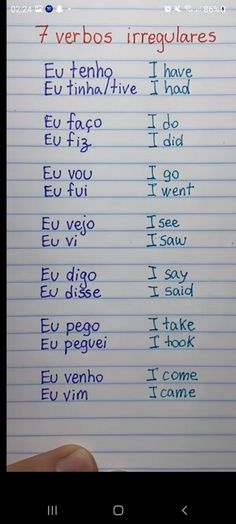 02:24
86%
7 verbos irregulares
Eu tenho I have
Eu tinha/tive I had
Eu faço I do
Eu fiz I did
Eu vou I go
Eu fui I went
Eu vejo I see
Eu vi I saw
Eu digo I say
Eu disse I said
Eu pego I take
Eu peguei I took
Eu venho I come
Eu vim I came